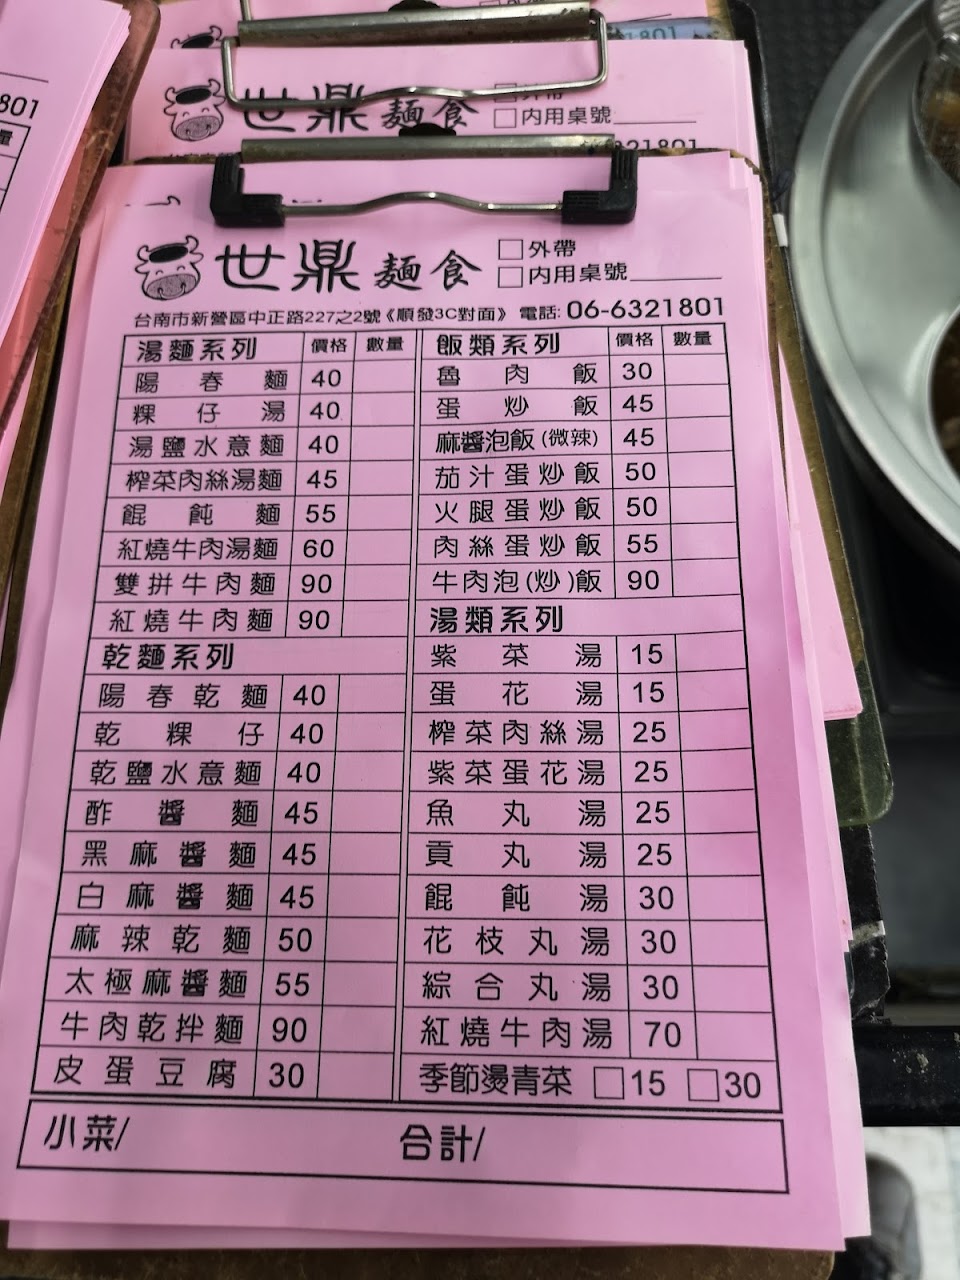 801
量
世鼎麵食
外帶
內用桌號
世鼎麵食
□外帶
□內用桌號
台南市新營區中正路227之2號《順發3C對面》 電話: 06-6321801
湯麵系列 價格 數量
陽春麵 40
粿仔湯 40
湯鹽水意麵 40
榨菜肉絲湯麵 45
餛飩麵 55
紅燒牛肉湯麵 60
雙拼牛肉麵 90
紅燒牛肉麵 90
乾麵系列
陽春乾麵 40
乾粿仔 40
乾鹽水意麵 40
酢醬麵 45
黑麻醬麵 45
白麻醬麵 45
麻辣乾麵 50
太極麻醬麵 55
牛肉乾拌麵 90
皮蛋豆腐 30
飯類系列 價格 數量
魯肉飯 30
蛋炒飯 45
麻醬泡飯(微辣) 45
茄汁蛋炒飯 50
火腿蛋炒飯 50
肉絲蛋炒飯 55
牛肉泡(炒)飯 90
湯類系列
紫菜湯 15
蛋花湯 15
榨菜肉絲湯 25
紫菜蛋花湯 25
魚丸湯 25
貢丸湯 25
餛飩湯 30
花枝丸湯 30
綜合丸湯 30
紅燒牛肉湯 70
季節燙青菜 □15 □30
小菜/
合計/